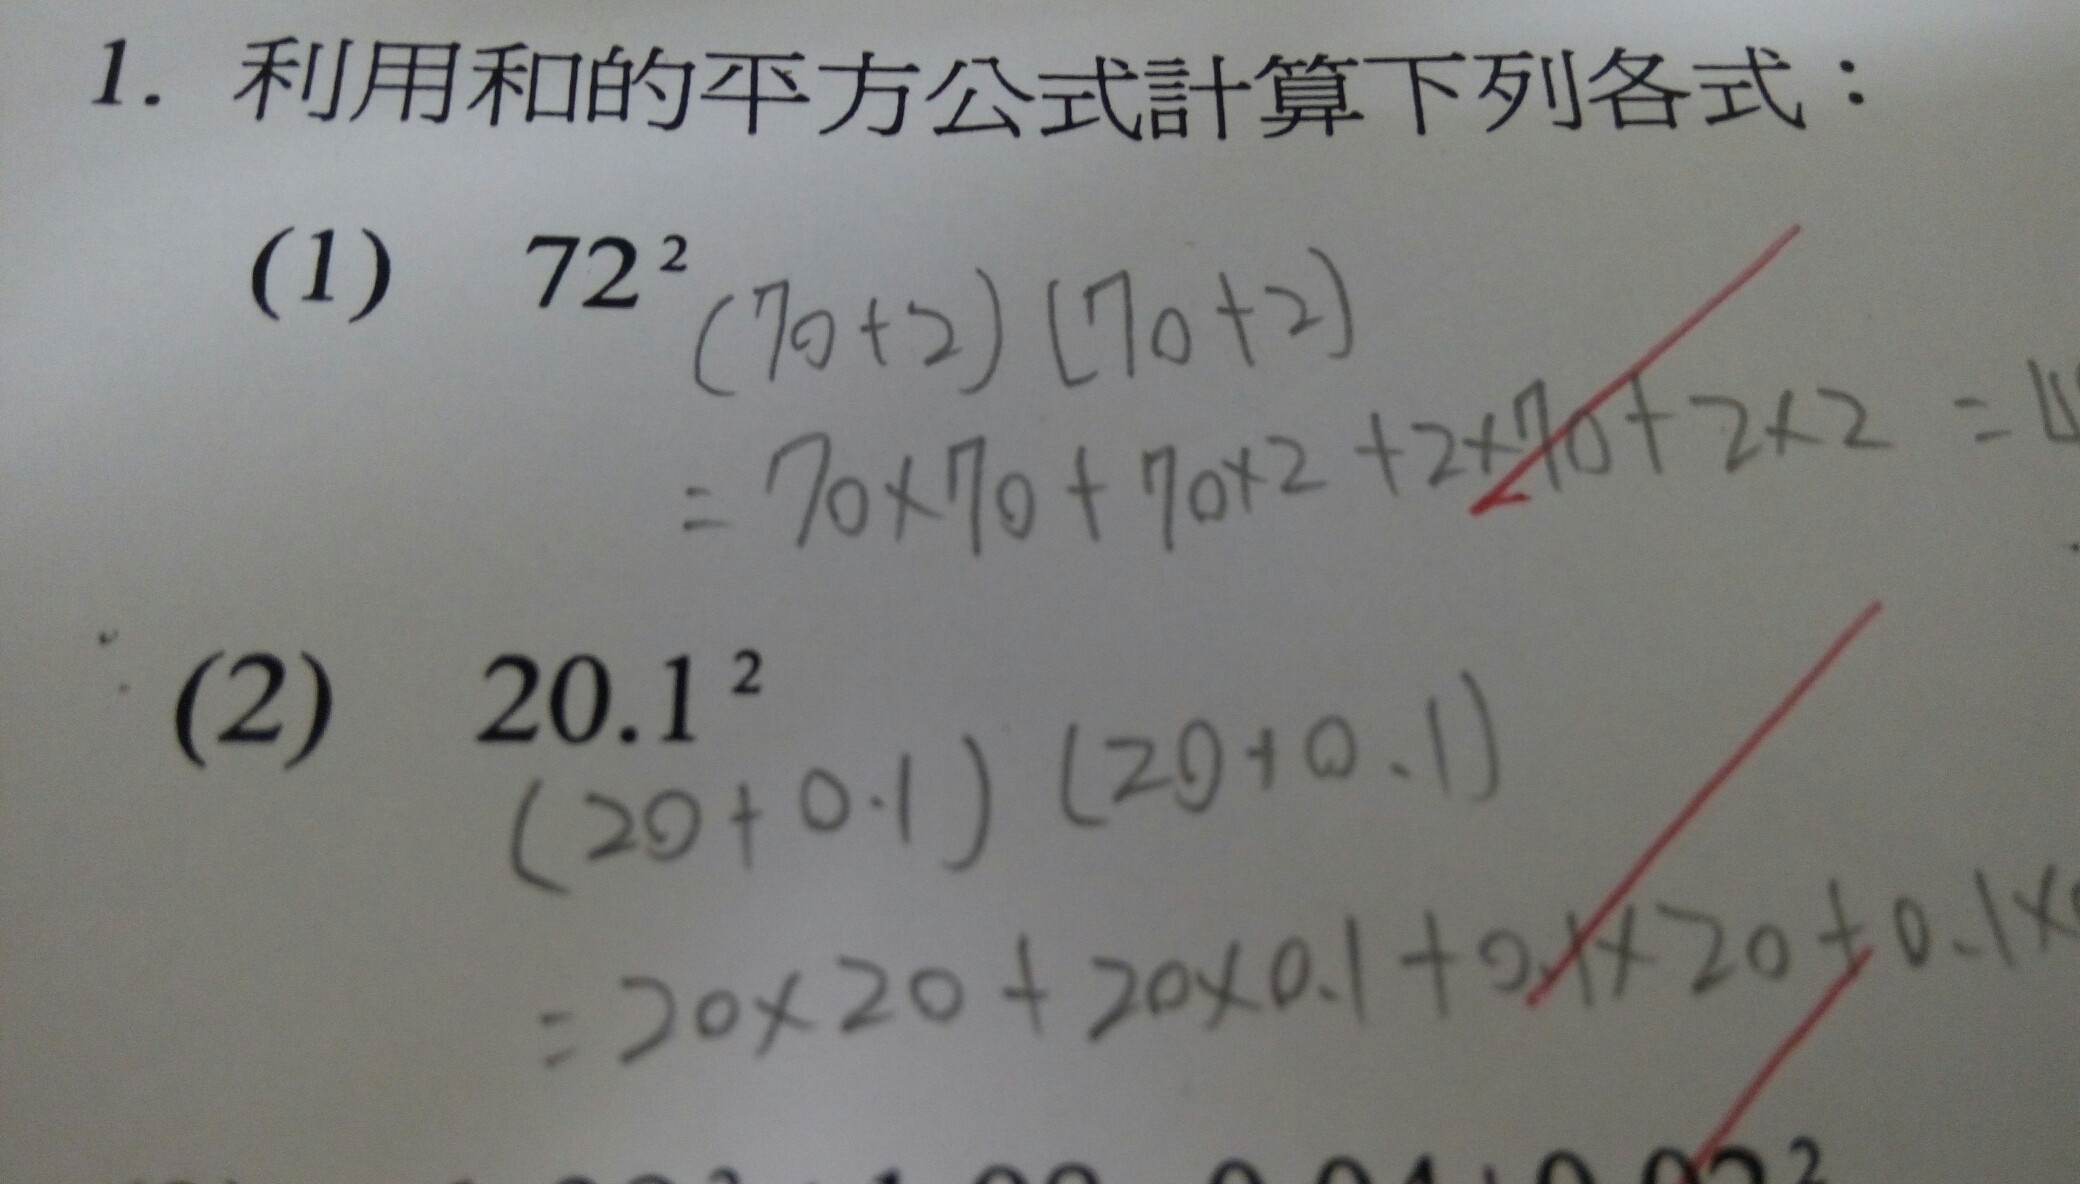 1. 利用和的平方公式計算下列各式：
(1) 72² (70+2)(70+2)
= 70×70 + 70×2 + 2×70 + 2×2 =
(2) 20.1²
(20+0.1)(20+0.1)
= 20×20 + 20×0.1 + 0.1×20 + 0.1×